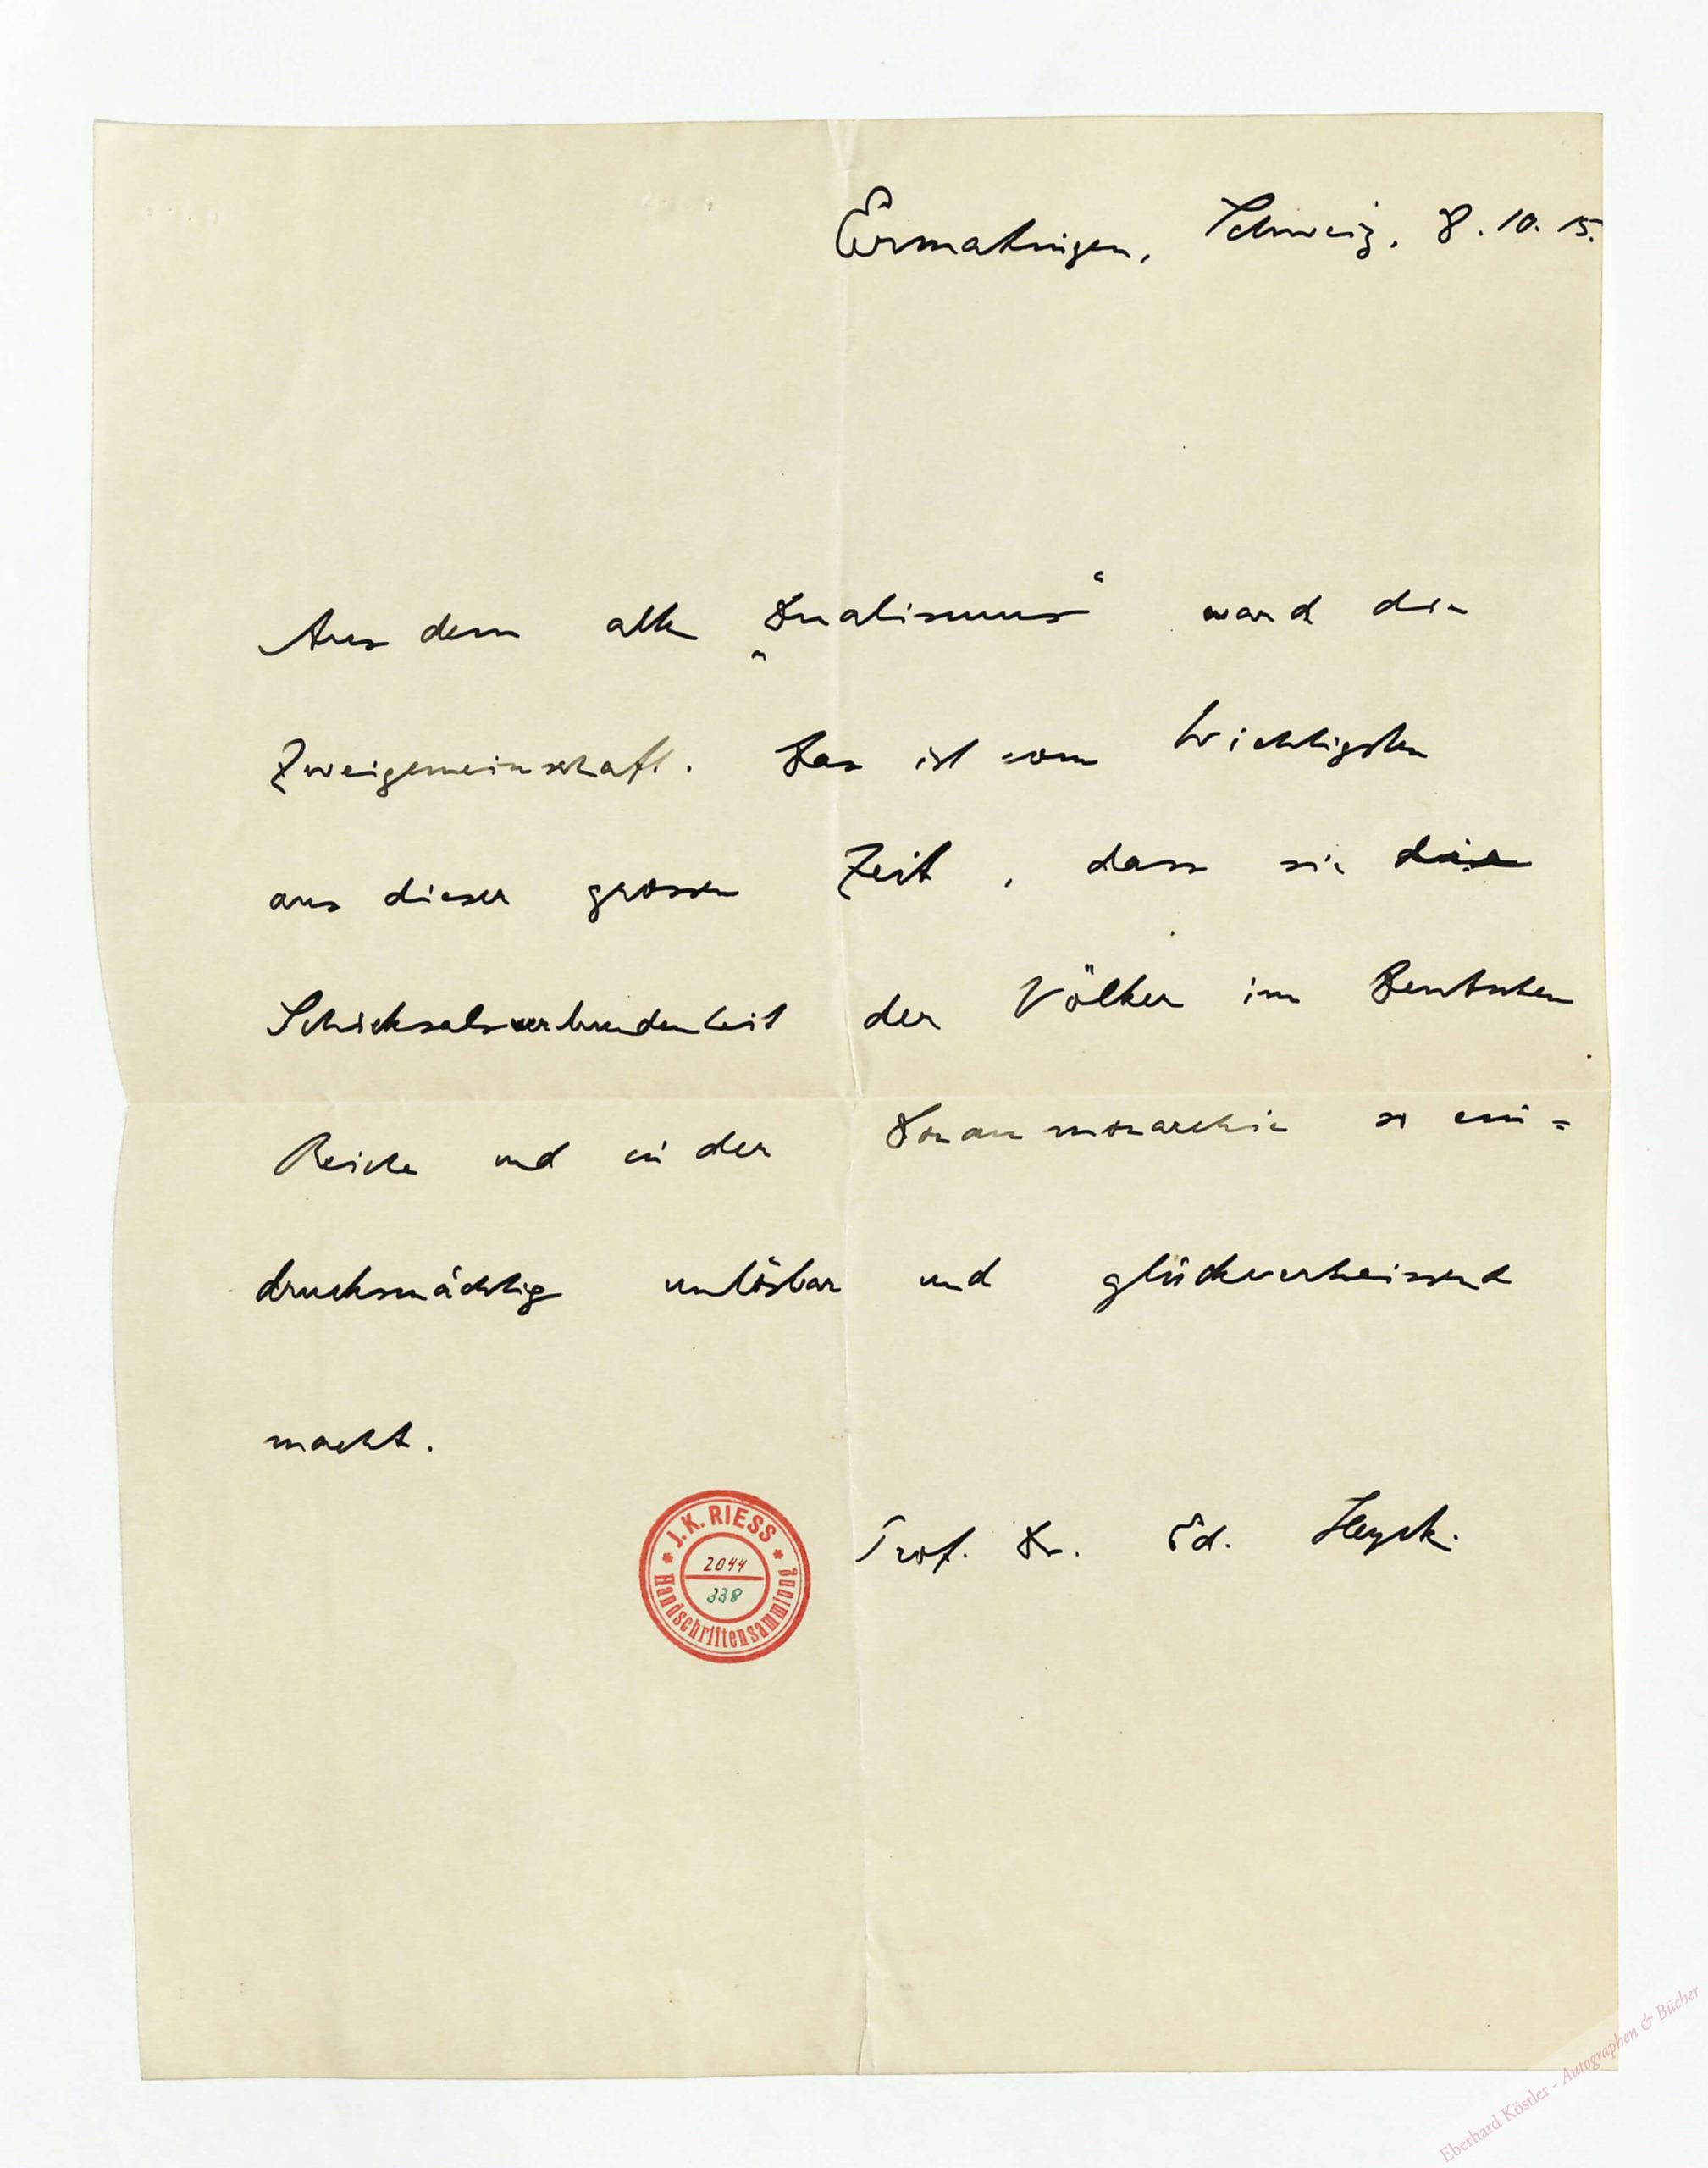 Ermatingen, Schweiz, 8. 10. 15.
Aus dem alten „Dualismus“ ward die
Zweigemeinschaft. Das ist vom Wichtigsten
aus dieser grossen Zeit, dass sie die
Schicksalsverbundenheit der Völker im Deutschen
Reiche und in der Donaumonarchie so ein=
drucksmächtig unlösbar und glückverheissend
macht.
Prof. Dr. Ed. Heyck.
J. K. RIESS
2044
338
Handschriftensammlung
Eberhard Köstler - Autographen & Bücher